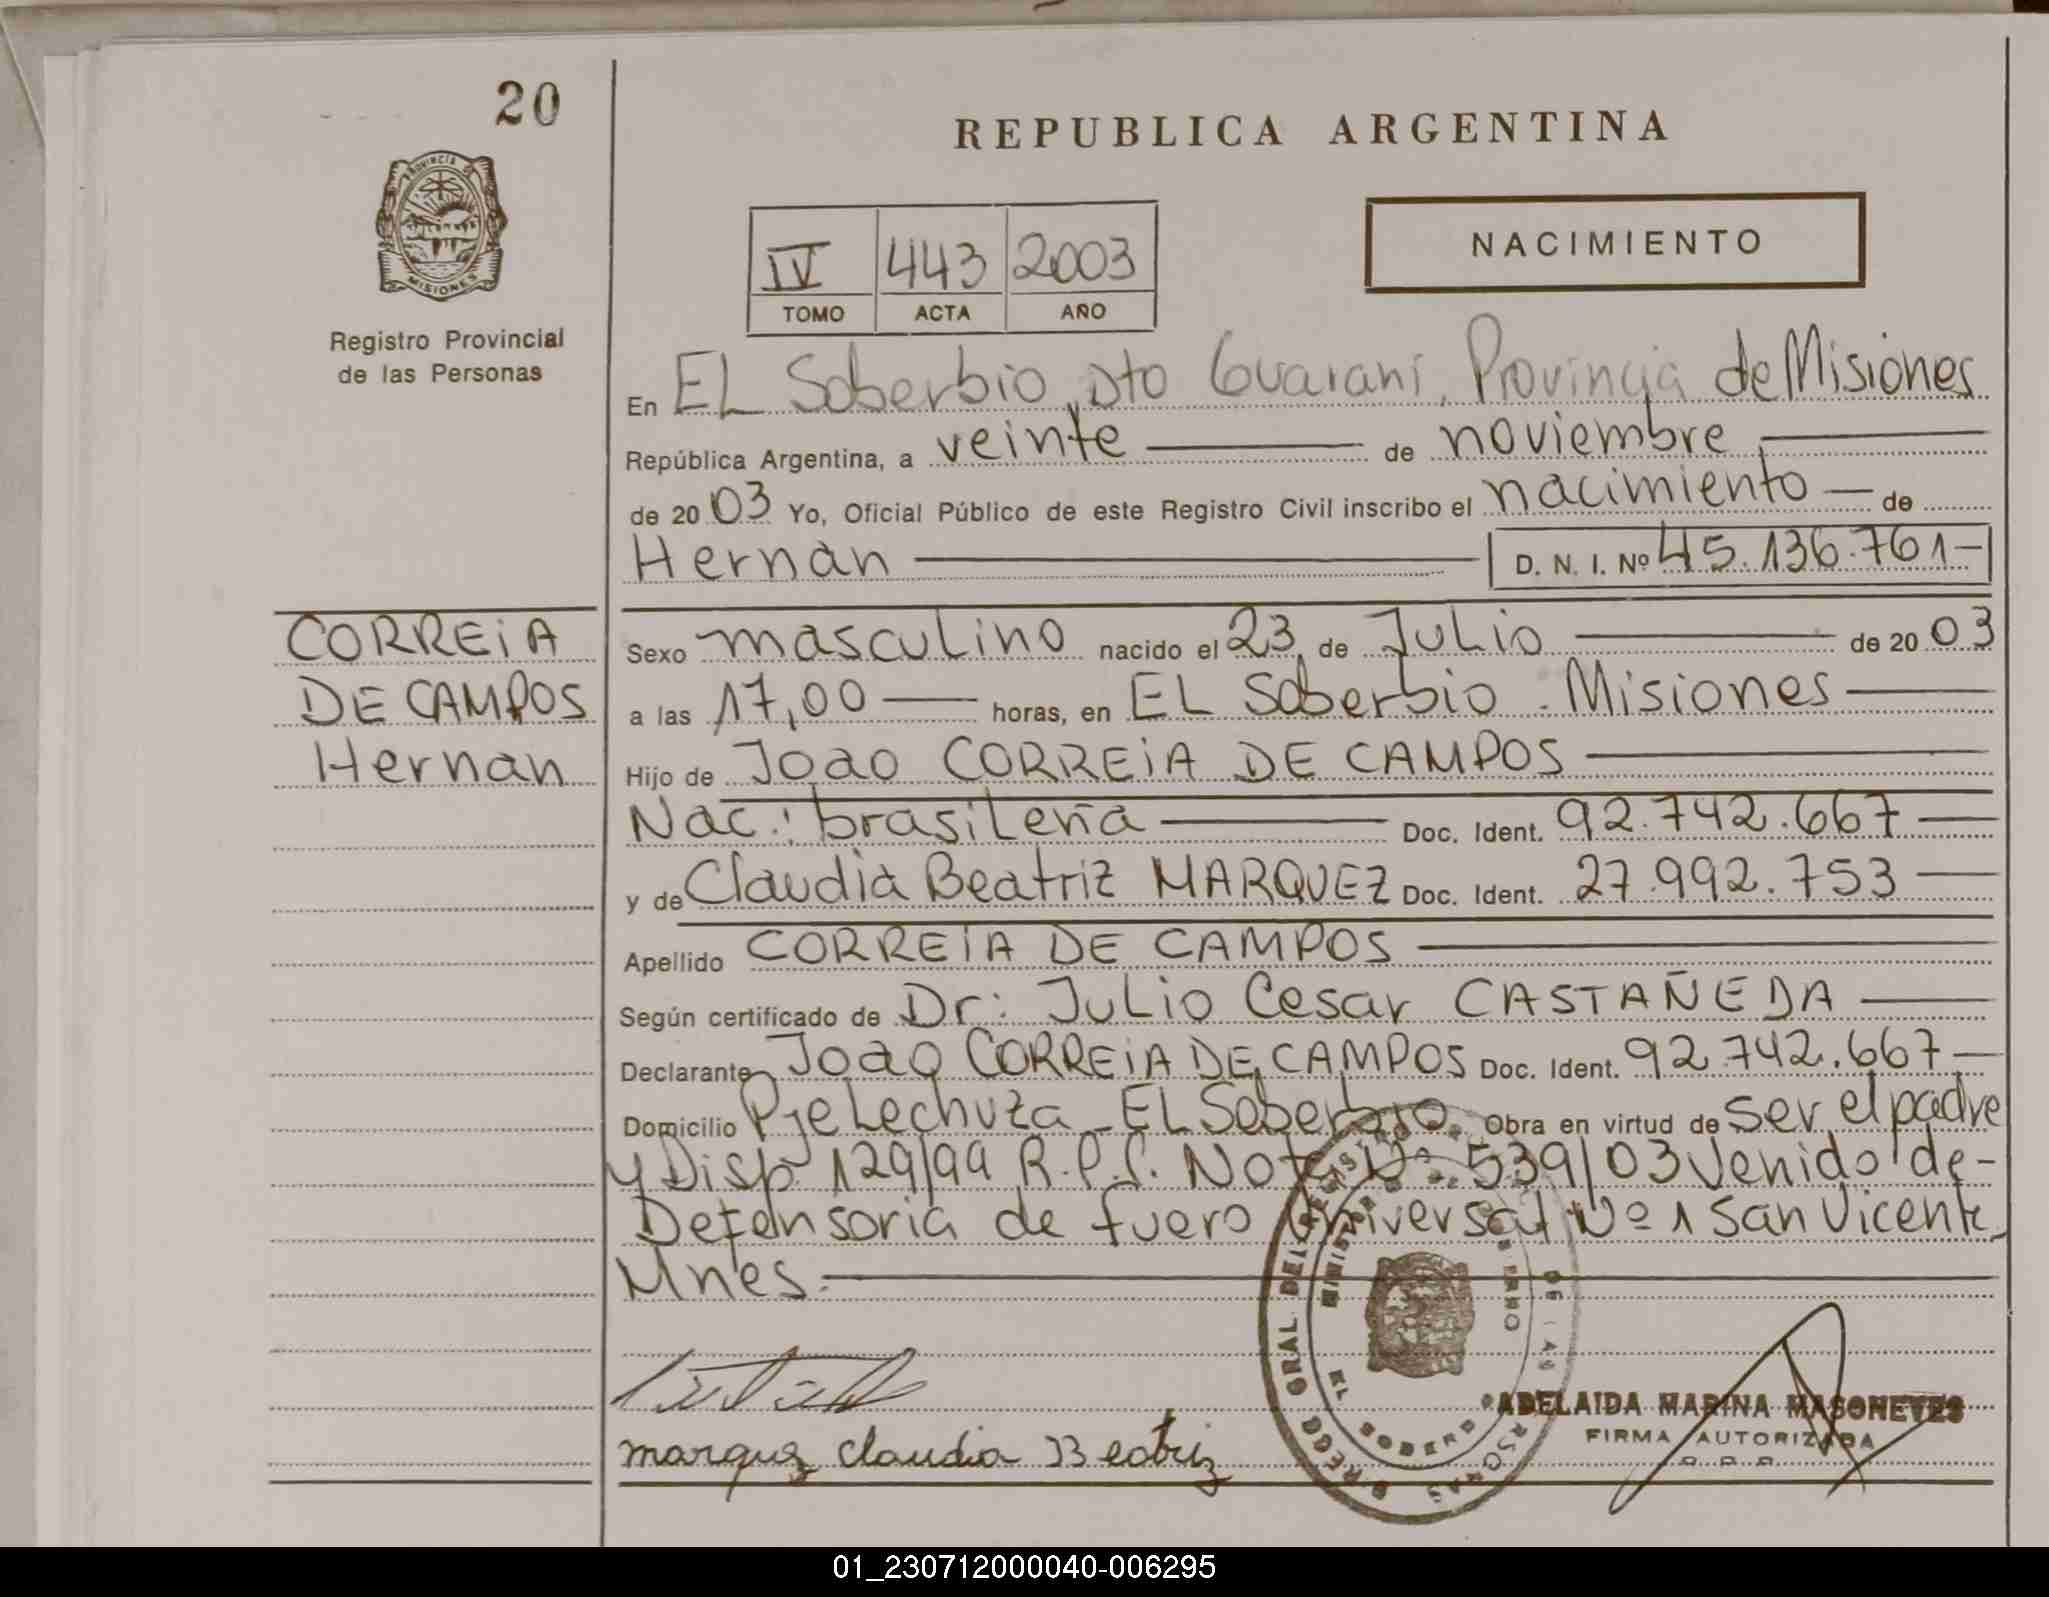 20
PROVINCIA DE
MISIONES
Registro Provincial
de las Personas
REPUBLICA ARGENTINA
IV 443 2003
TOMO ACTA AÑO
NACIMIENTO
En EL Soberbio, Dto Guaraní, Provincia de Misiones
República Argentina, a veinte de noviembre
de 2003 Yo, Oficial Público de este Registro Civil inscribo el nacimiento de
Hernan D. N. I. Nº 45.136.761
CORREIA
DE CAMPOS
Hernan
Sexo masculino nacido el 23 de Julio de 2003
a las 17,00 horas, en EL Soberbio - Misiones
Hijo de Joao CORREIA DE CAMPOS
Nac.: brasileña Doc. Ident. 92.742.667
y de Claudia Beatriz MARQUEZ Doc. Ident. 27.992.753
Apellido CORREIA DE CAMPOS
Según certificado de Dr: Julio Cesar CASTAÑEDA
Declarante Joao CORREIA DE CAMPOS Doc. Ident. 92.742.667
Domicilio Pje Lechuza - EL Soberbio Obra en virtud de ser el padre
y Disp. 129/99 R.P.S. Nota Nº 539/03 Venido de-
Defensoria de fuero Universal Nº 1 San Vicente
Mnes.
marquz claudia Beatriz
ADELAIDA MARINA
FIRMA AUTORIZADA
01_230712000040-006295